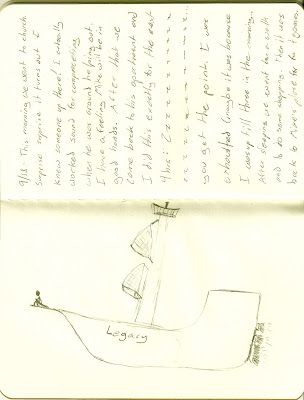 9/18 - This morning we went to church.
Surprise surprise it turns out I
know someone up there! I actually
worked sound for
when he was around helping out.
I have a feeling Mike will be in
good hands. After that we
came back to his apartment and
I did this exactly for the next
4 hrs: Zzzzzzzzzzz
zzzzzzzzzz
you get the point. I was
exhausted (maybe it was because
I was up till three in the morning.
After sleeping we went for a walk
and to do some shopping. Then it was
back to Moore Street for
Legacy